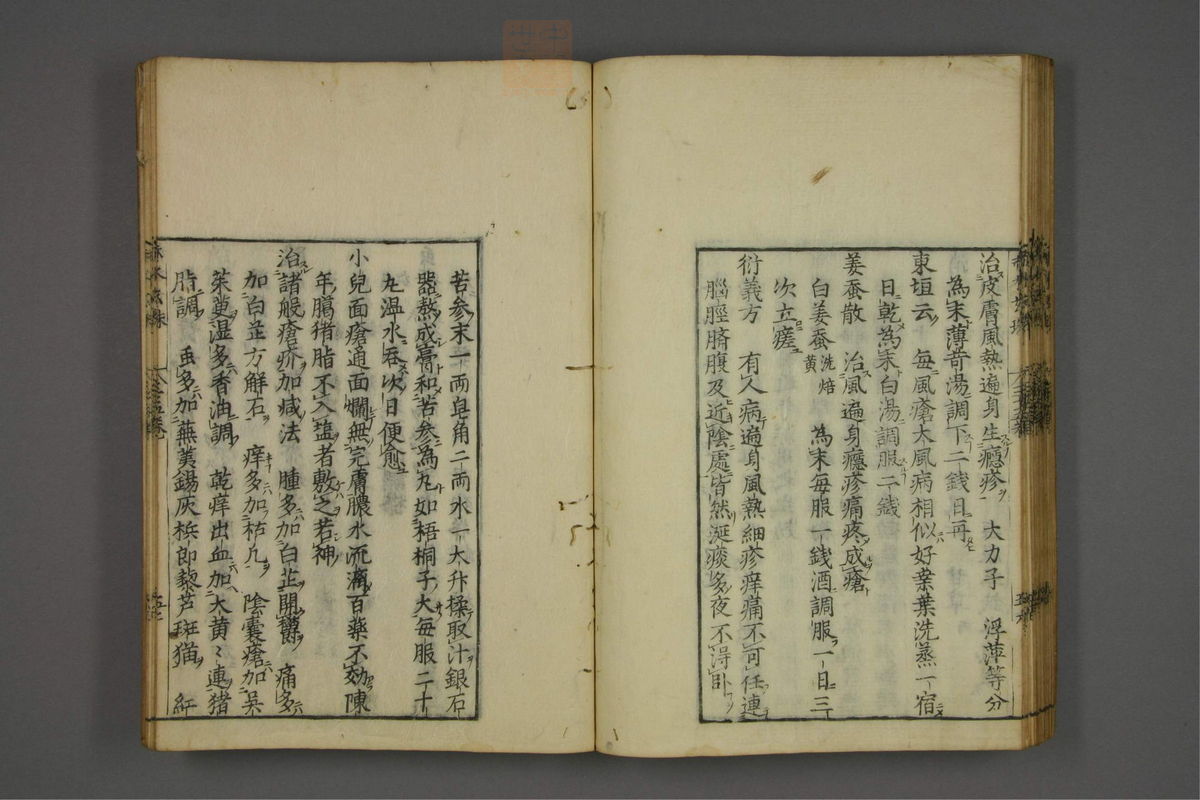 治皮膚風熱遍身生癮疹 大力子 浮萍等分
為末薄苛湯調下二錢日再
東垣云 毎風瘡大風病相似好葉洗蒸一宿
日乾為末白湯調服二錢
姜蚕散 治風遍身癮疹痛疼成瘡
白姜蚕洗焙黄 為末毎服一錢酒調服一日三
次立瘥
衍義方 有人病遍身風熱細疹痒痛不可任連
腦脛臍腹及近陰處皆然涎痰多夜不淂卧
苦参末一两皂角二两水一大升揉取汁銀石
器熬成膏和苦参為丸如梧桐子大毎服二十
丸温水吞次日便愈
小兒面瘡通面爛無完膚膿水流漓百薬不効陳
年臈猪脂不入塩者敷之若神
治諸般瘡疥加减法 腫多加白芷開欝 痛多
加白芷方解石 痒多加枯凡 陰嚢瘡加吴
茱萸湿多香油調 乾痒出血加大黄〻連猪
脂調 虫多加蕪荑錫灰梹郎藜芦斑猫 紅